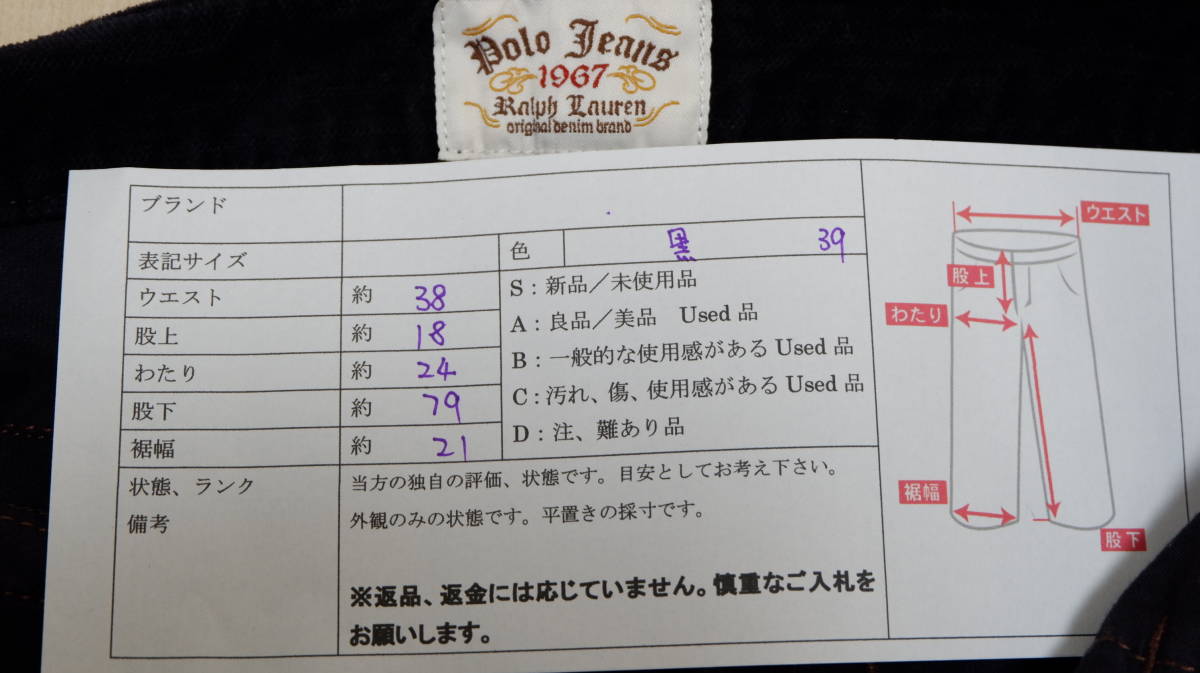 Polo Jeans
1967
Ralph Lauren
original denim brand
ブランド
表記サイズ
色 黒 39
ウエスト 約 38
股上 約 18
わたり 約 24
股下 約 79
裾幅 約 21
S：新品／未使用品
A：良品／美品 Used 品
B：一般的な使用感がある Used 品
C：汚れ、傷、使用感がある Used 品
D：注、難あり品
状態、ランク
備考
当方の独自の評価、状態です。目安としてお考え下さい。
外観のみの状態です。平置きの採寸です。
※返品、返金には応じていません。慎重なご入札を
お願いします。
ウエスト
股上
わたり
裾幅
股下